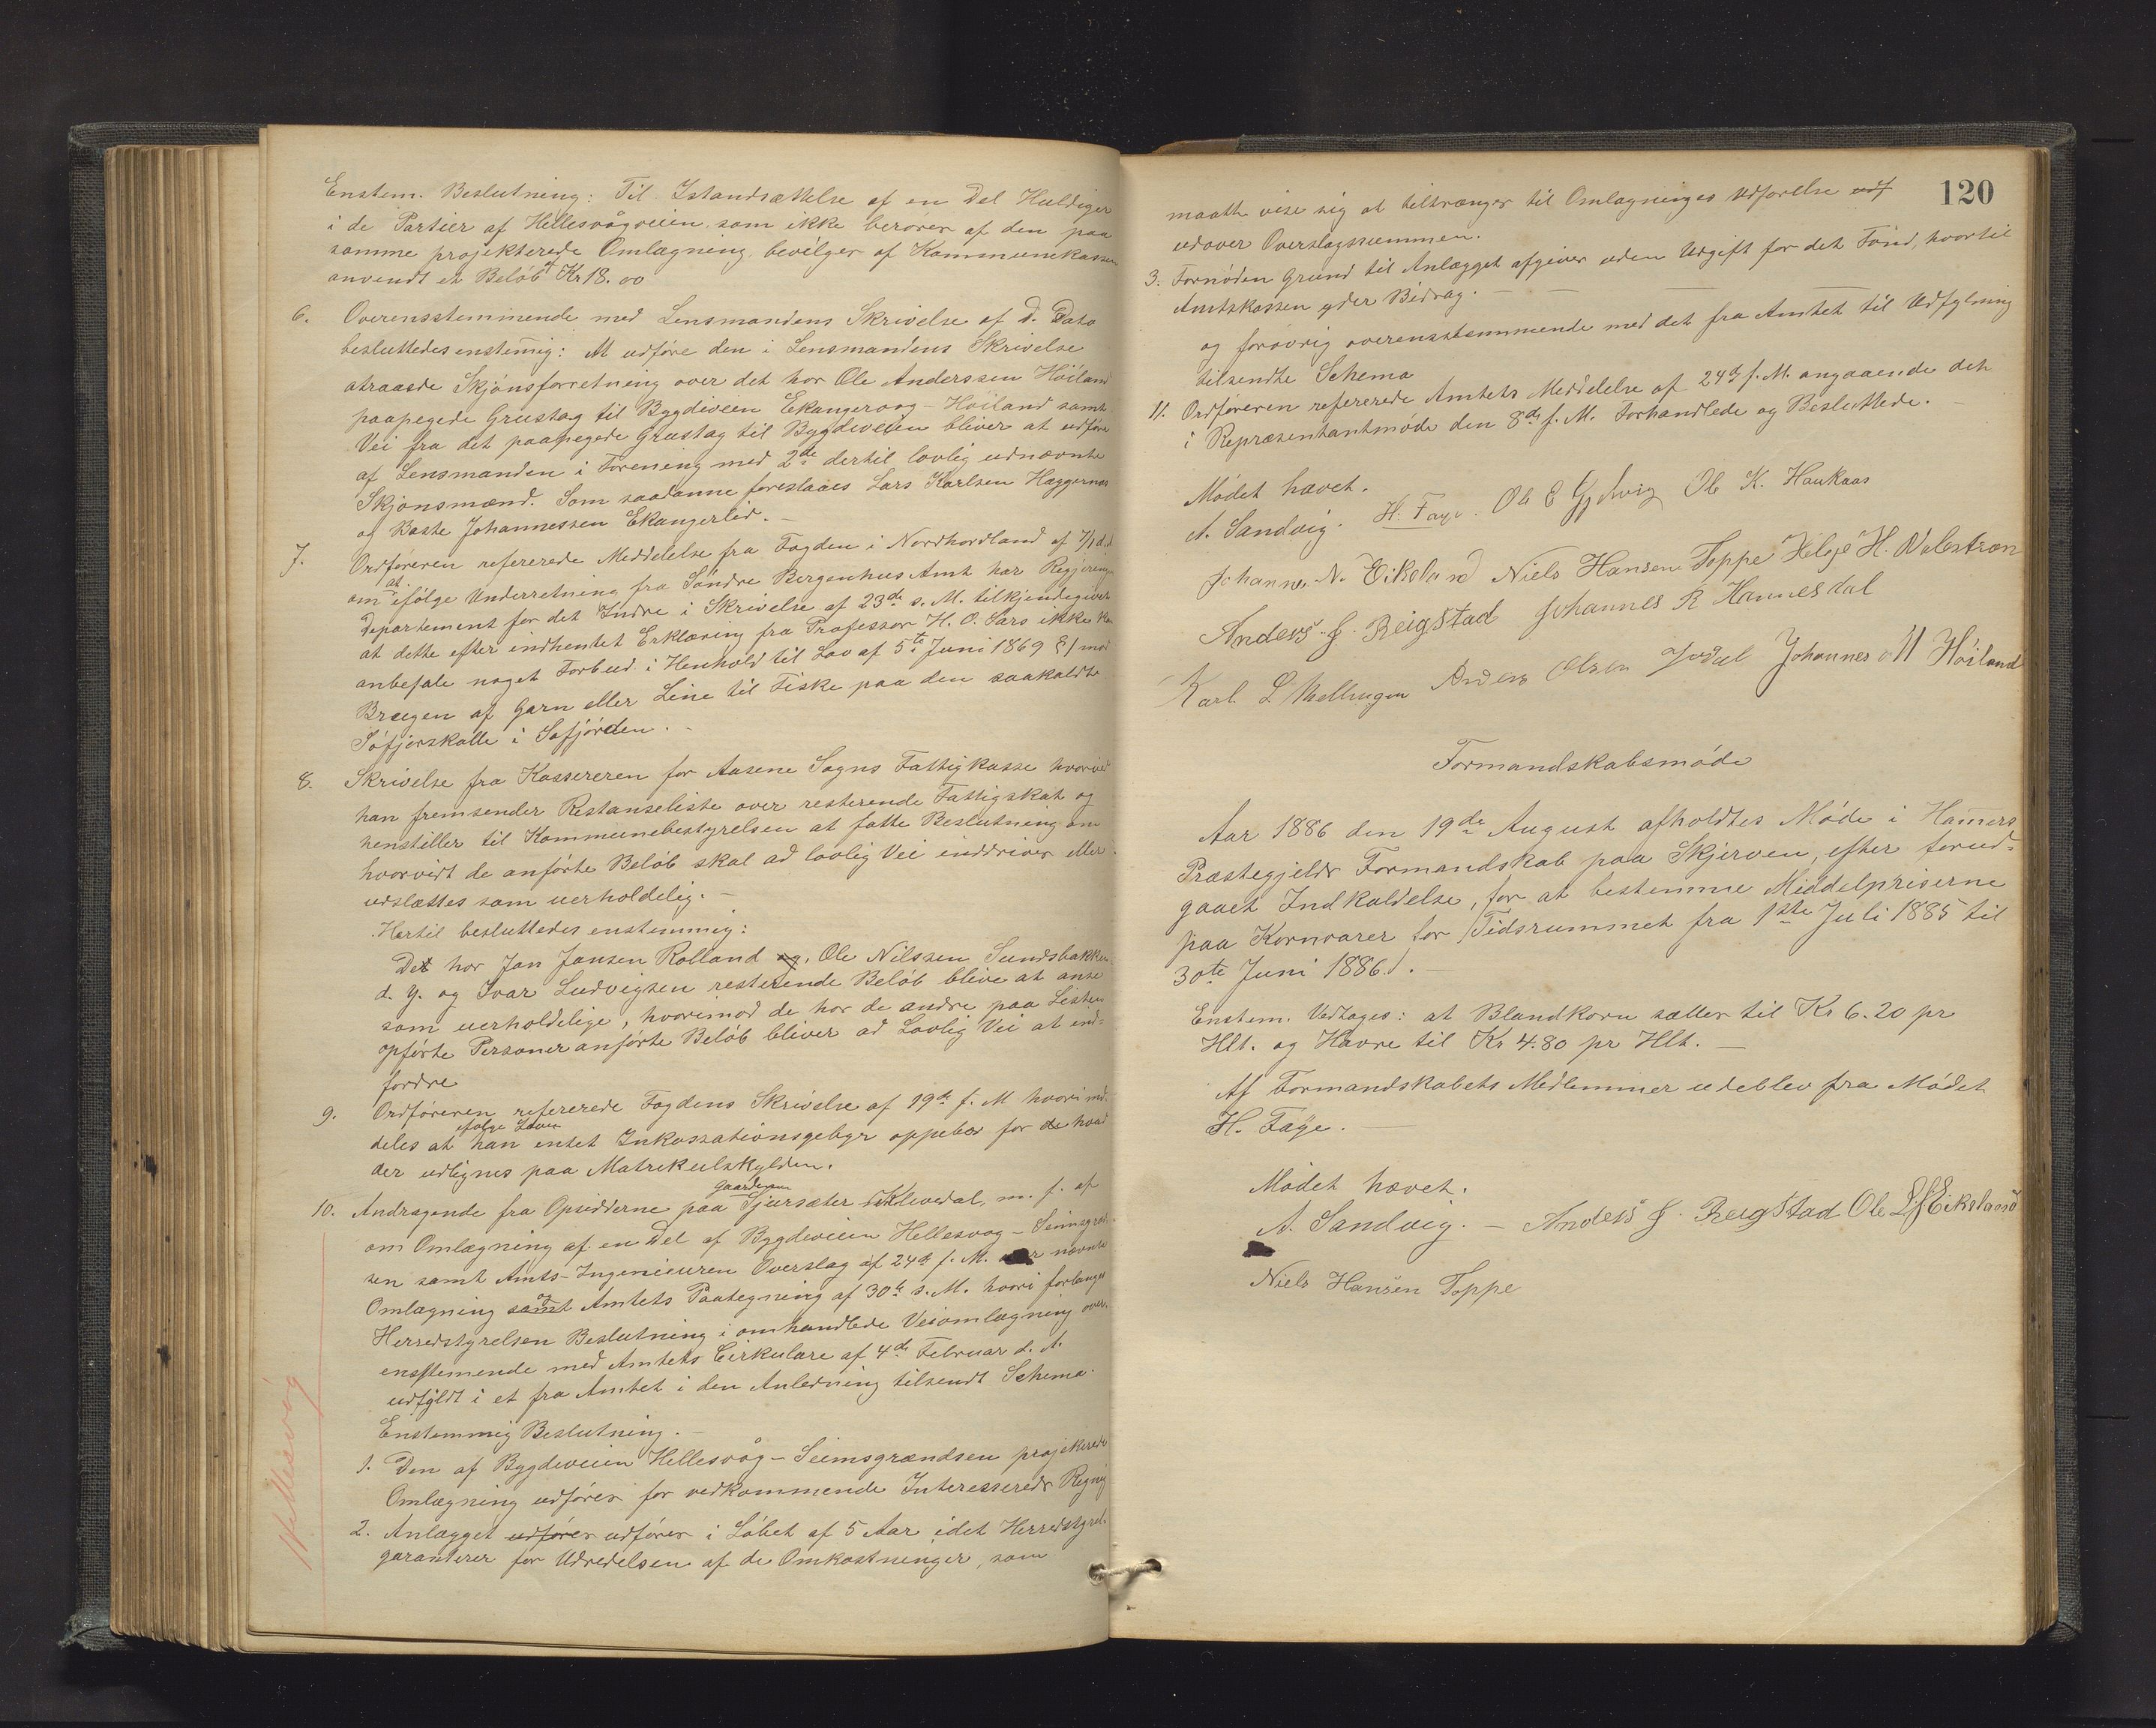 Enstem. Beslutning: Til Istandsættelse af en Del Huldiger
i de Partier af Hellesvågveien som ikke berøres af den paa
samme projekterede Omlægning, bevilges af Kommunekassen
anvendt et Beløb Kr 18.00
6. Overensstemmende med Lensmandens Skrivelse af d. Dato
besluttedes enstemmig: At udføre den i Lensmandens Skrivelse
atraaede Skjønsforretning over det hos Ole Anderssen Höiland
paapegede Grustag til Bygdeveien Ekangervog - Höiland samt
Vei fra det paapegede Grustag til Bygdeveien bliver at udføre
af Lensmanden i Forening med 2de dertil lovlig udnævnte
Skjönsmænd. Som saadanne foreslaaes Lars Karlsen Hæggernes
og Baste Johannessen Ekangerlid.
7. Ordføreren refererede Meddelelse fra Fogden i Nordhordland af 7/1 d.
om at ifölge Underretning fra Söndre Bergenhus Amt har Regjeringens
Departement for det Indre i Skrivelse af 23de s. M. tilkjendegivet
at dette efter indhentet Erklæring fra Professor H. O. Sars ikke kan
anbefale noget Forbud i Henhold til Lov af 5te Juni 1869 § 1 mod
Brugen af Garn eller Line til Fiske paa den saakaldte
Söfjorskalle i Sofjörden.
8. Skrivelse fra Kassereren for Aasene Sogns Fattigkasse hvorved
han fremsender Restanseliste over resterende Fattigskat og
henstiller til Kommunebestyrelsen at fatte Beslutning om
hvorvidt de anförte Belöb skal ad lovlig Vei inddrives eller
udslettes som uerholdelig.
Hertil besluttedes enstemmig:
Det hos Jan Jansen Rolland og, Ole Nilssen Sundsbakken
d. y. og Ivar Ludvigsen resterende Belöb blive at anse
som uerholdelige, hvorimod de hos de andre paa Listen
opförte Personer anförte Belöb bliver ad Lovlig Vei at ind=
fordre
9. Ordføreren refererede Fogdens Skrivelse af 19de f. M hvori med
deles at ifølge Loven han intet Inkassationsgebyr oppebær for de hvad
der udlignes paa Matrikulskylden.
10. Andragende fra Opsidderne paa Gaardene Gjersæter Klevedal, m. f. af
om Omlægning af en Del af Bygdeveien Hellesvog - Seimsgrænd
sen samt Amts-Ingeniøren Overslag af 24de f. M. nævnte
Omlægning samt og Amtets Paategning af 30te s. M. hvori forlanges
Herredstyrelsen Beslutning i omhandlede Veiomlægning over
ensstemende med Amtets Cirkulære af 4de Februar d. A.
udfyldt i et fra Amtet i den Anledning tilsendt Schema.
Enstemmig Beslutning.
1. Den af Bygdeveien Hellesvåg - Seimsgrændsen projekterede
Omlægning udföres for vedkommende Interesseredes Regning
2. Anlægget udføres udföres i Löbet af 5 Aar idet Herredstyrel.
garanterer for Udredelsen af de Omkostninger, som
Hellesvåg
120
maatte vise sig at tiltrænges til Omlægningens Udførelse udf
udover Overslagssummen.
3. Fornöden Grund til Anlægget afgives uden Udgift for det Fond, hvortil
Amtskassen yder Bidrag.
og forövrig overensstemmende med det fra Amtet til Udfylning
tilsendte Schema
11. Ordføreren refererede Amtets Meddelelse af 24de f. M. angaaende det
i Repræsentantmöde den 8de f. M. Forhandlede og Besluttede.
Mödet hævet.
A. Sandvig. H. Faye. Ole E Ole K. Haukaas
Johannes N. Eikeland Niels Hansen Toppe Helge H. Valestran
Anders J. Beigstad Johannes R Hannesdal
Karl L Mellingen Anders Olsen Johannes H Höiland
Formandskabsmöde
Aar 1886 den 19de August afholdtes Möde i Hamers
Præstegjelds Formandskab paa Skjerven, efter forud=
gaaet Indkaldelse, for at bestemme Middelpriserne
paa Kornvarer for Tidsrummet fra 1ste Juli 1885 til
30te Juni 1886.
Enstem. Vedtages: at Blandkorn sættes til Kr 6.20 pr
Hlt. og Havre til Kr 4.80 pr Hlt.
Af Formandskabets Medlemmer udeblev fra Mödet
H. Faye.
Mödet hævet.
A. Sandvig. - Anders J. Beigstad Ole L Eikeland
Niels Hansen Toppe